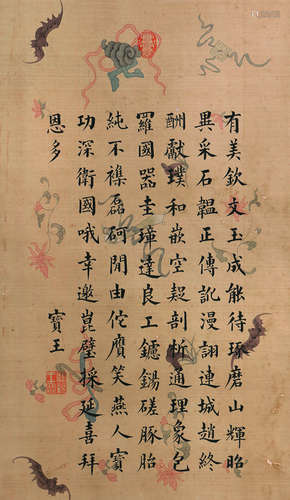 有美欽文玉成能待琢磨山輝昭
異采石韞正傳訛漫詡連城趙終
酬獻璞和嵌空起剖析通理象包
羅國器圭璋達良工鑢鐋磋豚胎
純不襍磊砢閒由佗贗笑燕人寶
功深衛國哦幸邀崑璧採延喜拜
恩多
寶王